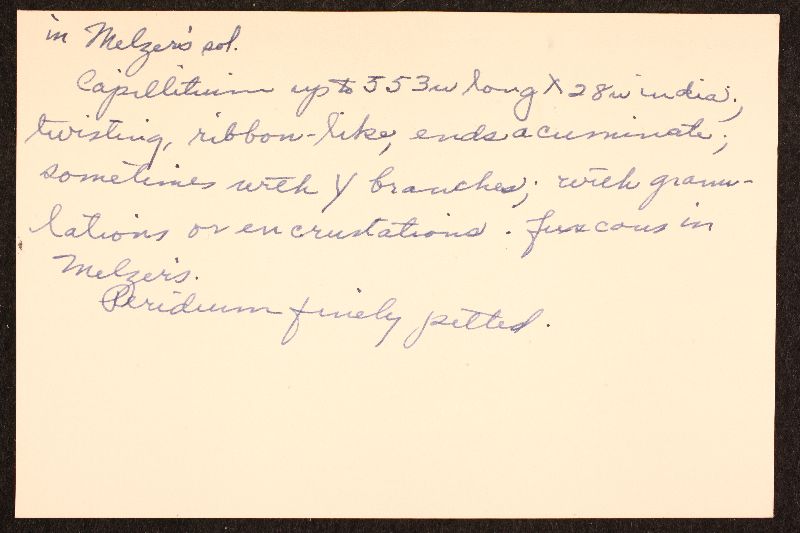 in Melzer's sol.
Capillitium up to 553u long X 28u in dia.,
twisting, ribbon-like, ends acuminate;
sometimes with Y branches; with granu-
lations or encrustations. fuscous in
Melzer's.
Peridium finely pitted.